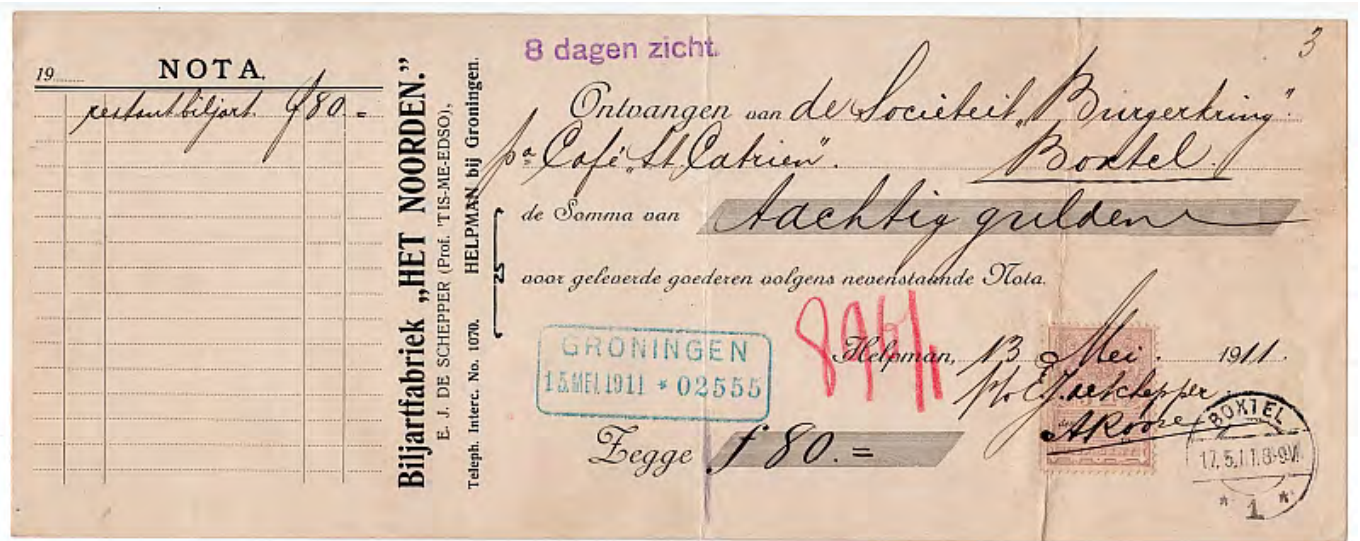 19 NOTA.
restant biljart. f 80.=
Biljartfabriek „HET NOORDEN.”
E. J. DE SCHEPPER (Prof. 'TIS-ME-EDSO),
Teleph. Interc. No. 1070. HELPMAN bij Groningen.
8 dagen zicht.
3
Ontvangen van de Societeit „Burgerkring”.
p/a Café „St. Catrien”. Boxtel.
de Somma van tachtig gulden
25
voor geleverde goederen volgens nevenstaande Nota.
GRONINGEN
15.MEI.1911 * 02555
Helpman, 13 Mei. 1911.
p/o E.J. de Schepper
Zegge f 80.=
BOXTEL
17.5.11.8-9V.
* 1 *